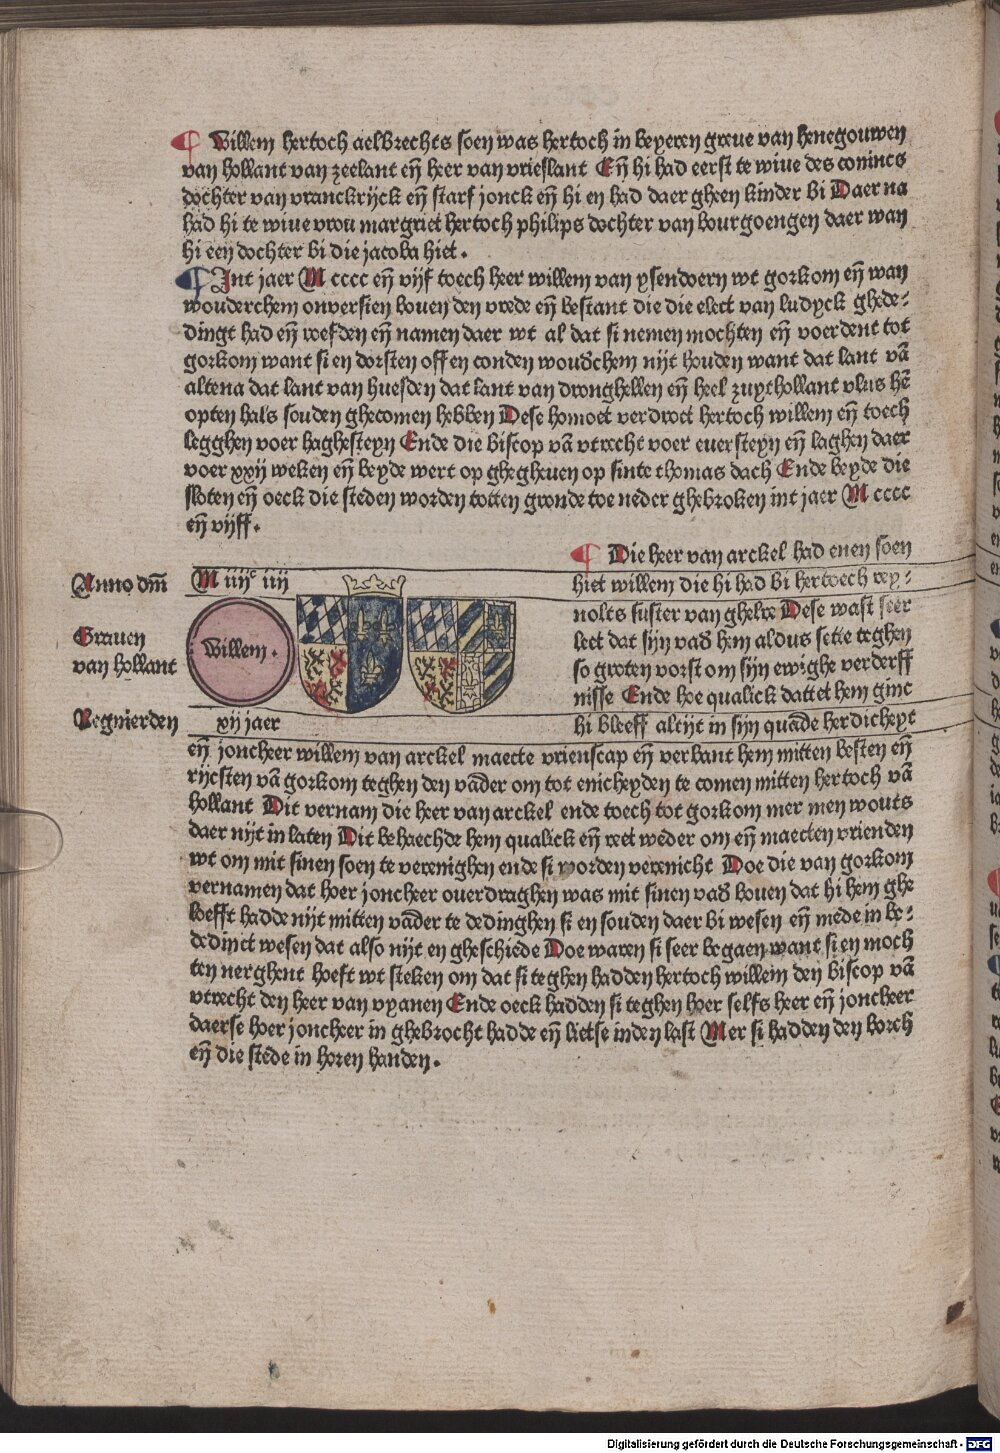 ¶ Willem hertoch aelbrechts soen was hertoch in beyeren greue van henegouwen
van hollant van zeelant en̄ heer van vrieslant En̄ hi had eerst te wiue des conincs
dochter van vranckrijck en̄ starf jonck en̄ hi en had daer gheen kinder bi Daer na
had hi te wiue vrou margriet hertoch philips dochter van bourgoengen daer wan
hi een dochter bi die jacoba hiet.
¶ Int jaer M cccc en̄ vijf toech heer willem van ysendoern wt gorkom en̄ wan
wouderchem onversien bouen den vrede en̄ bestant die die elect van ludyck ghede⸗
dingt had en̄ roefden en̄ namen daer wt al dat si nemen mochten en̄ voerdent tot
gorkom want si en dorsten off en conden woudchem nijt houden want dat lant vā
altena dat lant van huesden dat lant van dronghellen en̄ heel zuythollant vlus hē
opten hals souden ghecomen hebben Dese homoet verdroet hertoch willem en̄ toech
legghen voer haghesteyn Ende die biscop vā vtrecht voer euersteyn en̄ laghen daer
voer xxij weken en̄ beyde wert op ghegheuen op sinte thomas dach Ende beyde die
sloten en̄ oeck die steden worden totten gronde toe neder ghebroken int jaer M cccc
en̄ vijff.
¶ Die heer van arckel had enen soen
Anno dm̄ M iiijᶜ iiij
hiet willem die hi had bi hertoech rey⸗
nolts suster van ghelre Dese wast seer
Grauen
van hollant
Willem.
leet dat sijn vad hem aldus sette teghen
so groten vorst om sijn ewighe verderff
nisse Ende hoe qualick dattet hem ginc
Regnierden xij jaer
hi bleeff altijt in sijn quade herdicheyt
en̄ joncheer willem van arckel maecte vrienscap en̄ verbant hem mitten besten en̄
rijcsten vā gorkom teghen den vader om tot enicheyden te comen mitten hertoch vā
hollant Dit vernam die heer van arckel ende toech tot gorkom mer men wouts
daer nijt in laten Dit behaechde hem qualick en̄ reet weder om en̄ maecten vrienden
wt om mit sinen soen te verenighen ende si worden verenicht Doe die van gorkom
vernamen dat hoer joncheer ouerdraghen was mit sinen vad bouen dat hi hem ghe
loefft hadde nijt mitten vader te dedinghen si en souden daer bi wesen en̄ mede in be⸗
dedinct wesen dat also nijt en gheschiede Doe waren si seer begaen want si en moch
ten nerghent hoeft wt steken om dat si teghen hadden hertoch willem den biscop vā
vtrecht den heer van vyanen Ende oeck hadden si teghen hoer selfs heer en̄ joncheer
daerse hoer joncheer in ghebrocht hadde en̄ lietse inden last Mer si hadden den borch
en̄ die stede in horen handen.
Digitalisierung gefördert durch die Deutsche Forschungsgemeinschaft - DFG